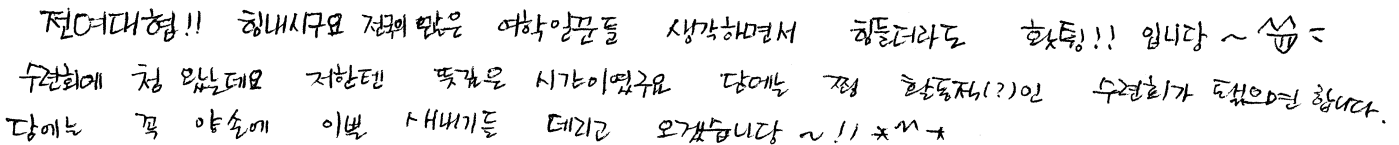 전여대협!! 힘내시구요 전국의 많은 여학일꾼들 생각하면서 힘들더라도 홧팅!! 입니당 ~ ^^ =
수련회에 첨 왔는데요 저한텐 뜻깊은 시간이였구요 담에는 쩜 활동적(?)인 수련회가 됐으면 합니다.
담에는 꼭 양손에 이쁜 새내기들 데리고 오겠습니당 ~ !! *^^*